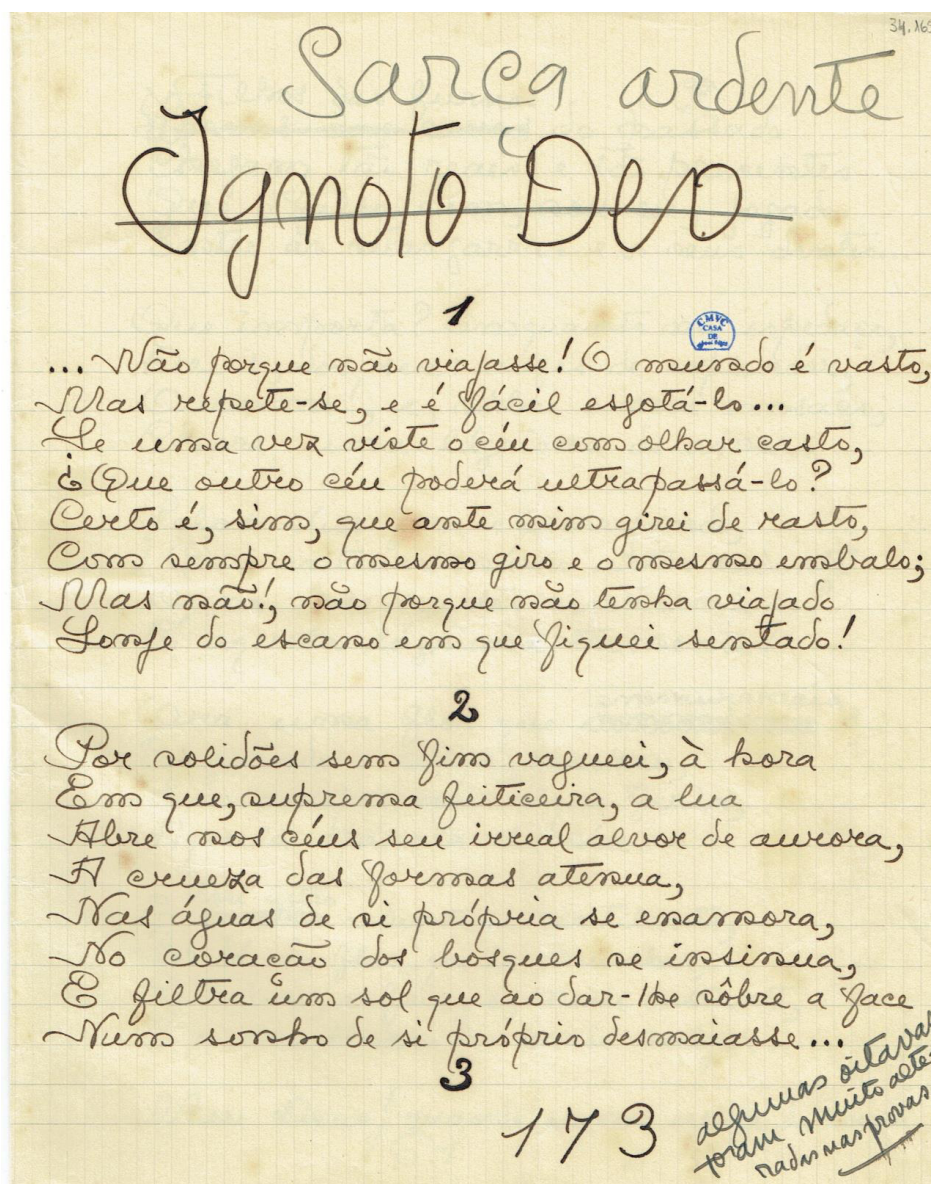 34.163
Sarça ardente
Ignoto Deo
1
CMVC
CASA
DE
... Não porque não viajasse! O mundo é vasto,
Mas repete-se, e é fácil esgotá-lo...
Se uma vez viste o céu com olhar casto,
¿Que outro céu poderá ultrapassá-lo?
Certo é, sim, que ante mim girei de rasto,
Com sempre o mesmo giro e o mesmo embalo;
Mas não!, não porque não tenha viajado
Longe do escano em que fiquei sentado!
2
Por solidões sem fim vagueei, à hora
Em que, suprema feiticeira, a lua
Abre nos céus seu irreal alvor de aurora,
A crueza das formas atenua,
Nas águas de si própria se enamora,
No coração dos bosques se insinua,
E filtra um sol que ao dar-lhe sôbre a face
Num sonho de si próprio desmaiasse...
3
173
algumas oitavas
foram muito alte-
radas nas provas